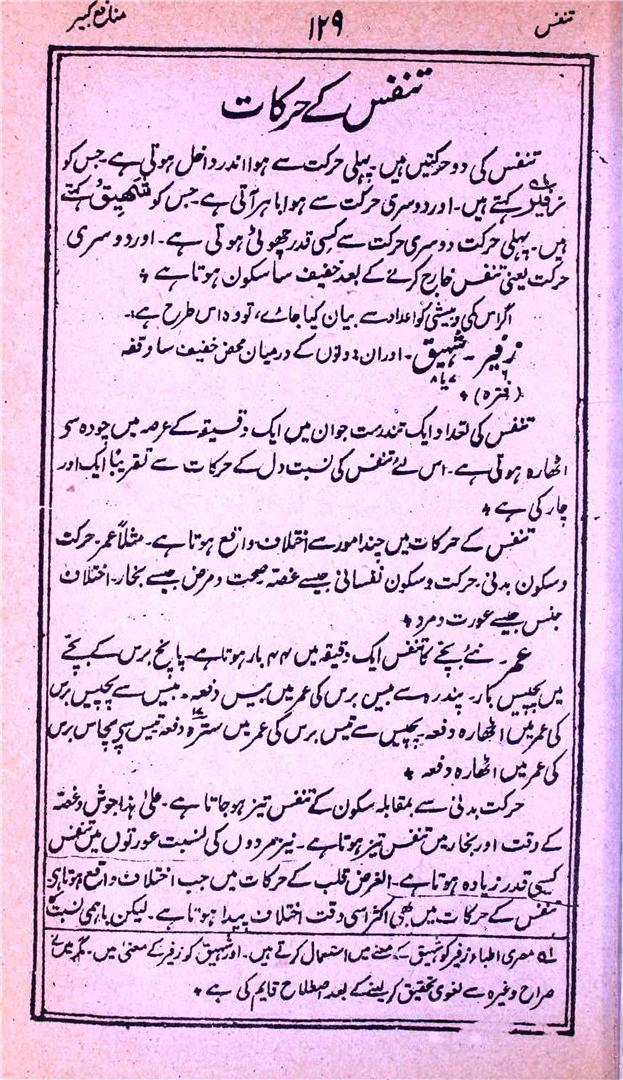 تنفس
۱۲۹
منافع کبیر
تنفس کے حرکات
تنفس کی دو حرکتیں ہیں۔ پہلی حرکت سے ہوا اندر داخل ہوتی ہے۔ جس کو
زفیر کہتے ہیں۔ اور دوسری حرکت سے ہوا باہر آتی ہے۔ جس کو شہیق کہتے
ہیں۔ پہلی حرکت دوسری حرکت سے کسی قدر چھوٹی ہوتی ہے۔ اور دوسری
حرکت یعنی تنفس خارج کرنے کے بعد خفیف سا سکون ہوتا ہے ٭
اگر اس کمی و بیشی کو اعداد سے بیان کیا جائے، تو وہ اس طرح ہے۔
زفیر۔ شہیق۔ اور ان دونوں کے درمیان محض خفیف سا وقفہ
۶ ۷ یا ۸
(فترہ) ٭
تنفس کی تعداد ایک تندرست جوان میں ایک دقیقہ کے عرصہ میں چودہ سے
اٹھارہ ہوتی ہے۔ اس لئے تنفس کی نسبت دل کے حرکات سے تقریباً ایک اور
چار کی ہے ٭
تنفس کے حرکات میں چند امور سے اختلاف واقع ہوتا ہے۔ مثلاً عمر۔ حرکت
و سکون بدنی۔ حرکت و سکون نفسانی جیسے غصہ۔ صحت و مرض جیسے بخار۔ اختلاف
جنس جیسے عورت و مرد ٭
عمر۔ نئے بچے کا تنفس ایک دقیقہ میں ۴۴ بار ہوتا ہے۔ پانچ برس کے بچے
میں چھبیس بار۔ پندرہ سے بیس برس کی عمر میں بیس دفعہ۔ بیس سے پچیس برس
کی عمر میں اٹھارہ دفعہ پچیس سے تیس برس کی عمر میں سترہ دفعہ تیس سے پچاس برس
کی عمر میں اٹھارہ دفعہ ٭
حرکت بدنی سے بمقابلہ سکون کے تنفس تیز ہو جاتا ہے۔ علیٰ ہذا جوش و غصہ
کے وقت اور بخار میں تنفس تیز ہوتا ہے۔ نیز مردوں کی نسبت عورتوں میں تنفس
کسی قدر زیادہ ہوتا ہے۔ الغرض قلب کے حرکات میں جب اختلاف واقع ہوتا ہے
تنفس کے حرکات میں بھی اکثر اسی وقت اختلاف پیدا ہوتا ہے۔ لیکن باہمی نسبت
۱ے مصری اطباء زفیر کو شہیق کے معنے میں استعمال کرتے ہیں۔ اور شہیق کو زفیر کے معنیٰ میں۔ مگر میں نے
صراح وغیرہ سے لغوی تحقیق کر لینے کے بعد اصطلاح قایم کی ہے ٭